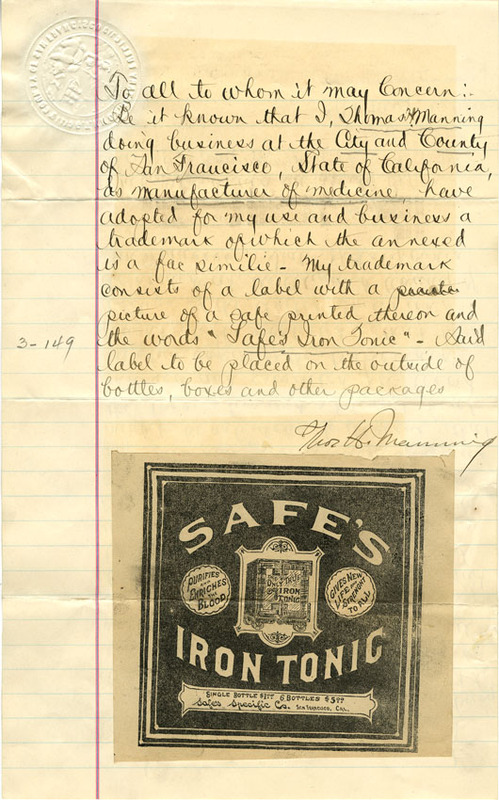 To all to whom it may Concern:-
Be it known that I, Thomas H Manning
doing business at the City and County
of San Francisco, State of California,
as manufacturer of medicine, have
adopted for my use and business a
trademark of which the annexed
is a fac similie - My trademark
consists of a label with a
picture of a safe printed thereon and
3-149
the words "Safe's Iron Tonic" - Said
label to be placed on the outside of
bottles, boxes and other packages
Thos H. Manning
SAFE'S
PURIFIES
AND
ENRICHES
THE
BLOOD
IRON
TONIC
GIVES NEW
LIFE AND
STRENGHT
TO ALL
IRON TONIC
SINGLE BOTTLE $1.00 6 BOTTLES $5.00
Safes Specific Co. SAN FRANCISCO, CAL.